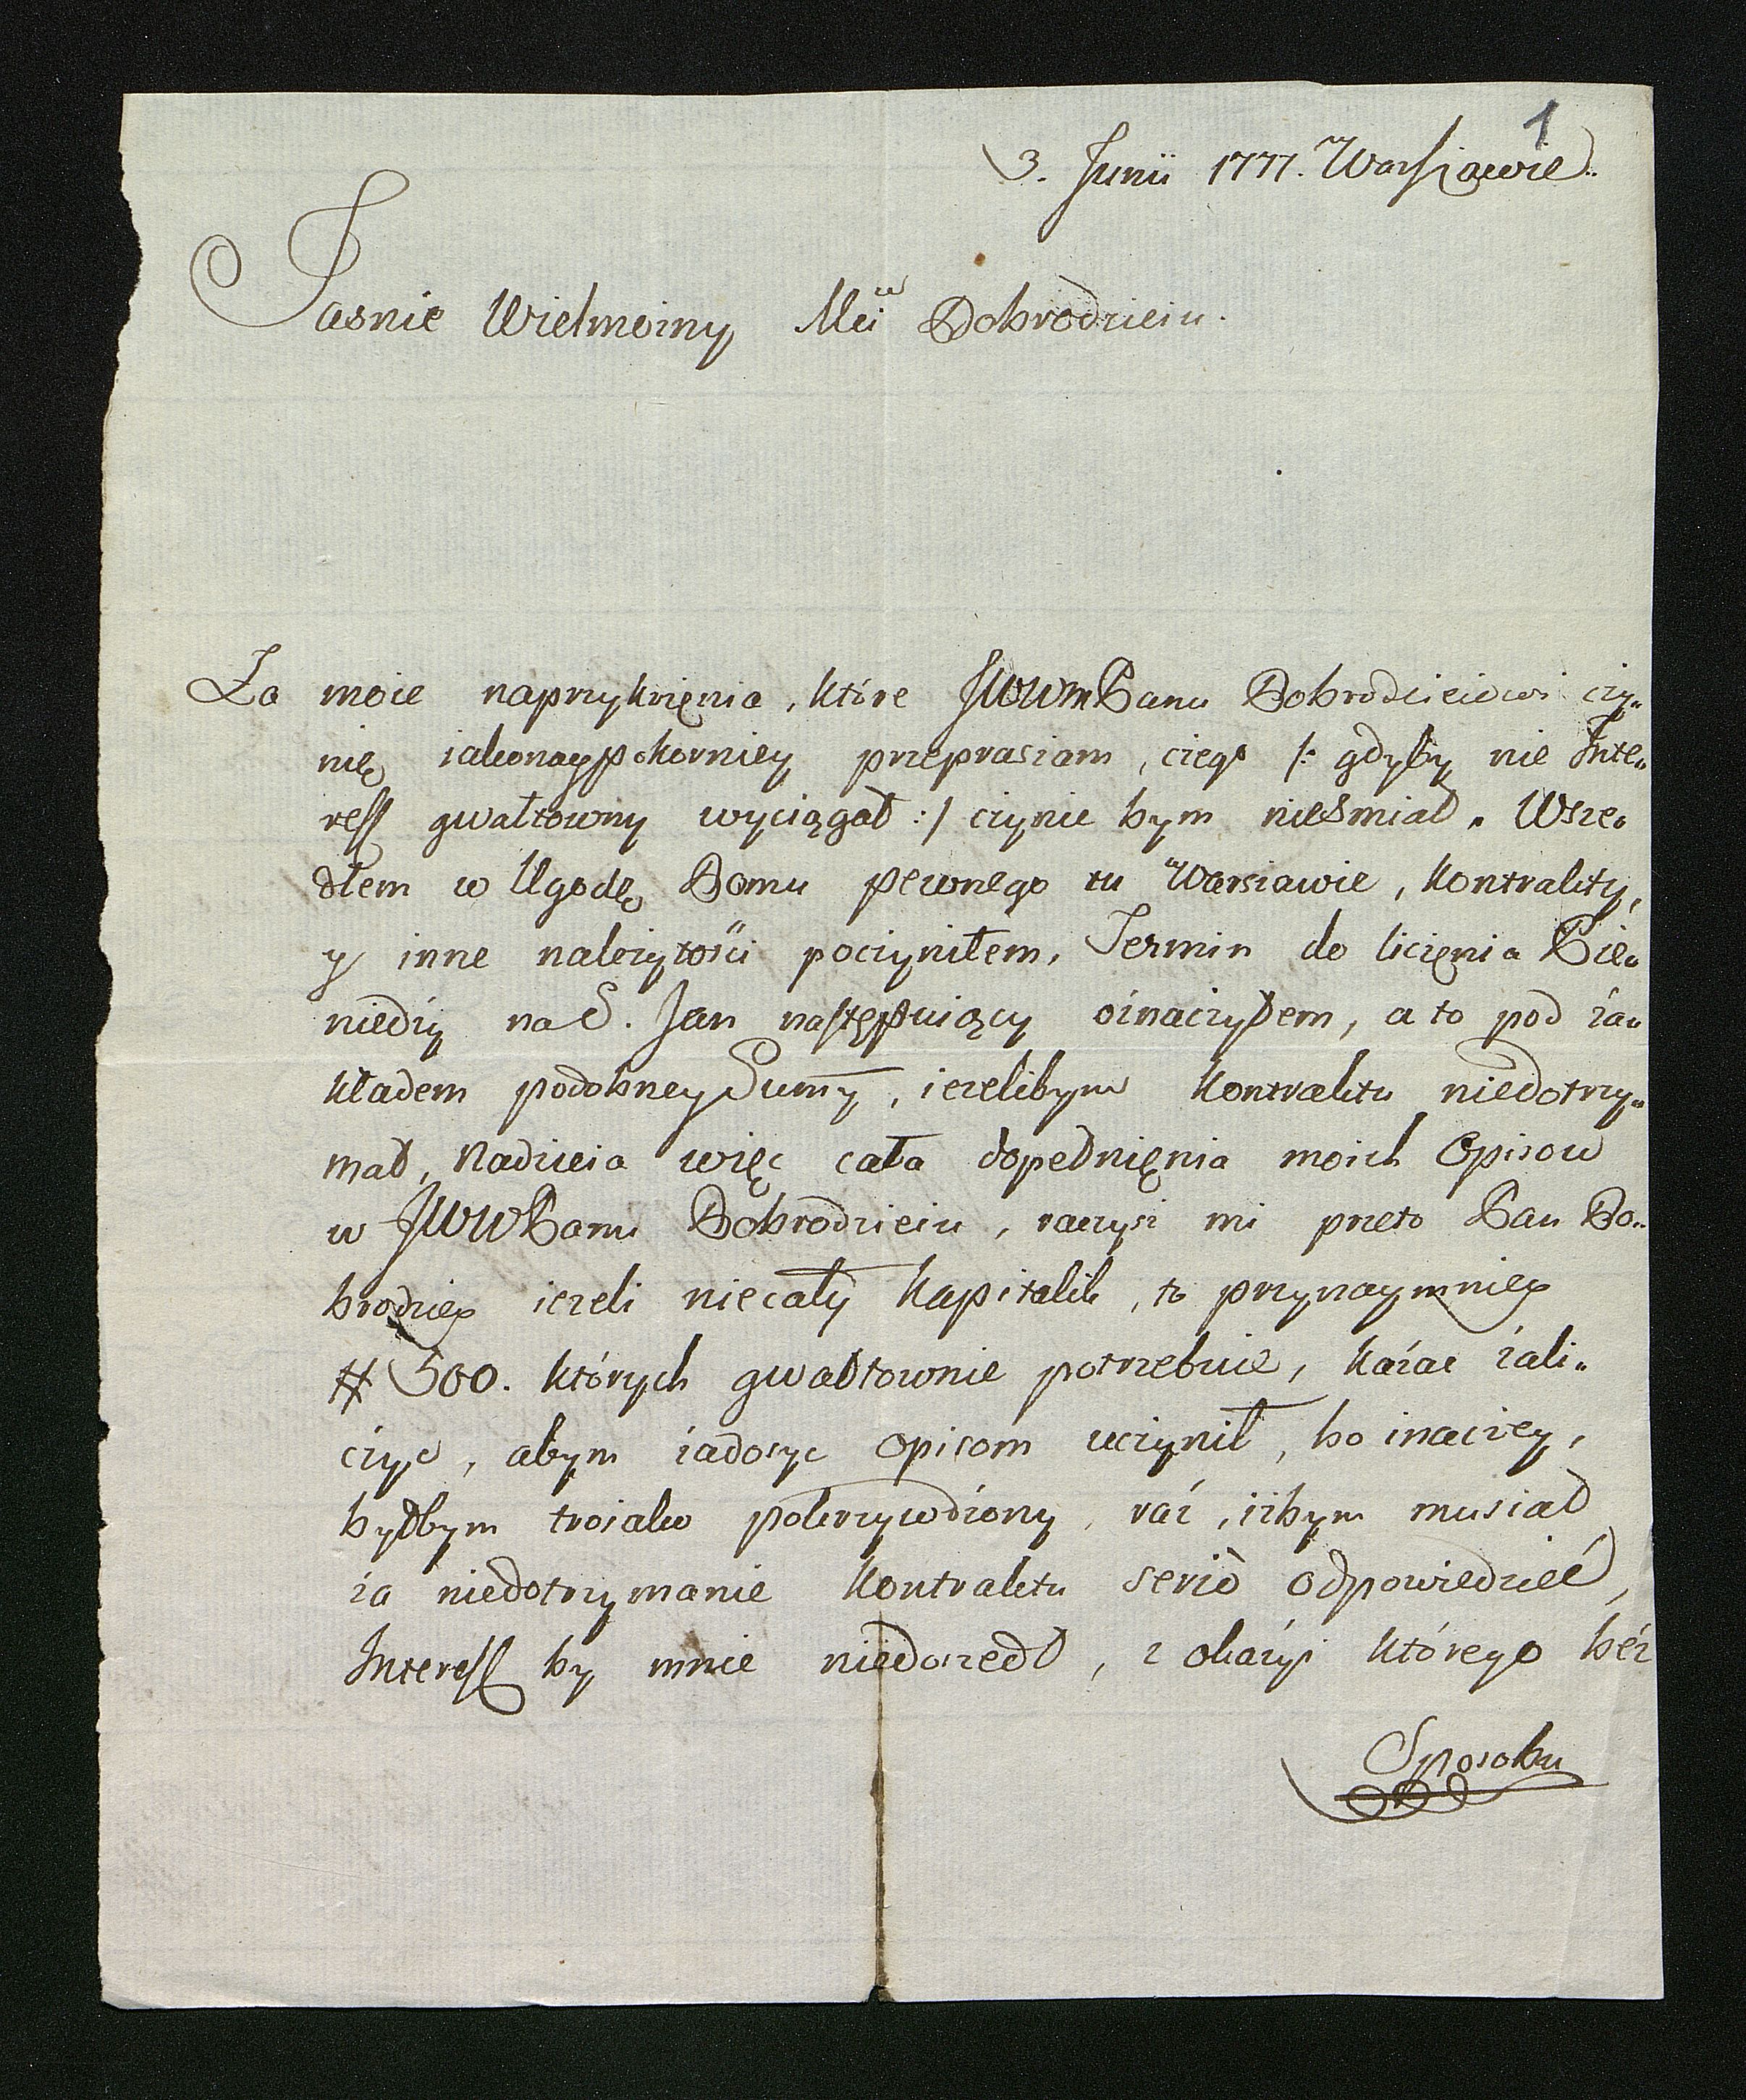 1
3. Junii 1777. Warszawie.
Jasnie Wielmożny Mci Dobrodzieiu.
Za moie naprzykrzęnia, które JWWM Panu Dobrodzieiowi czy„
nię iaknaypokorniey przepraszam, czego /: gdyby nie Inte„
ress gwałtowny wyciągał :/ czynic bym nieśmiał. Wsze„
dłem w Ugodę Domu pewnego tu Warszawie, Kontrakty,
y inne należytości poczyniłem, Termin do liczęnia Pie„
niędzy na S. Jan następuiący oznaczyłem, a to pod za„
kładem podobney Sumy, ieżelibym Kontraktu niedotrzy„
mał, Nadzieia więc cała dopełnięnia moich Opisow
w JWW Panu Dobrodzieiu, raczysz mi przeto Pan Do„
brodziey ieżeli niecały Kapitalik, to przynaymniey
# 500. których gwałtownie potrzebuię, kazac zali„
czyc, abym zadosyc Opisom uczynił, bo inaczey,
byłbym troiako pokrzywdzony, raz, iżbym musiał
za niedotrzymanie Kontraktu seriò odpowiedzieć,
Interess by mnie niedoszedł, z okazyi którego bez
Sposobu